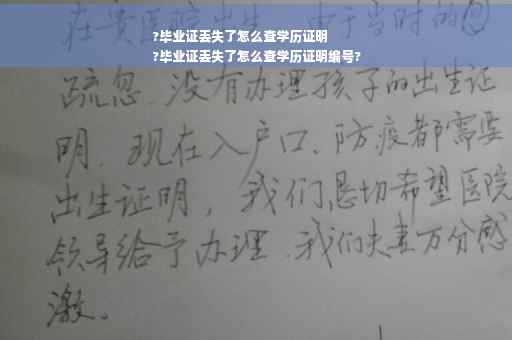 在贵医院出生,由于当时的
?毕业证丢失了怎么查学历证明
?毕业证丢失了怎么查学历证明编号?
疏忽.没有办理孩子的出生证
明.现在入户口、防疫都需要
出生证明,我们恳切希望医院
领导给予办理.我们夫妻万分感
激。